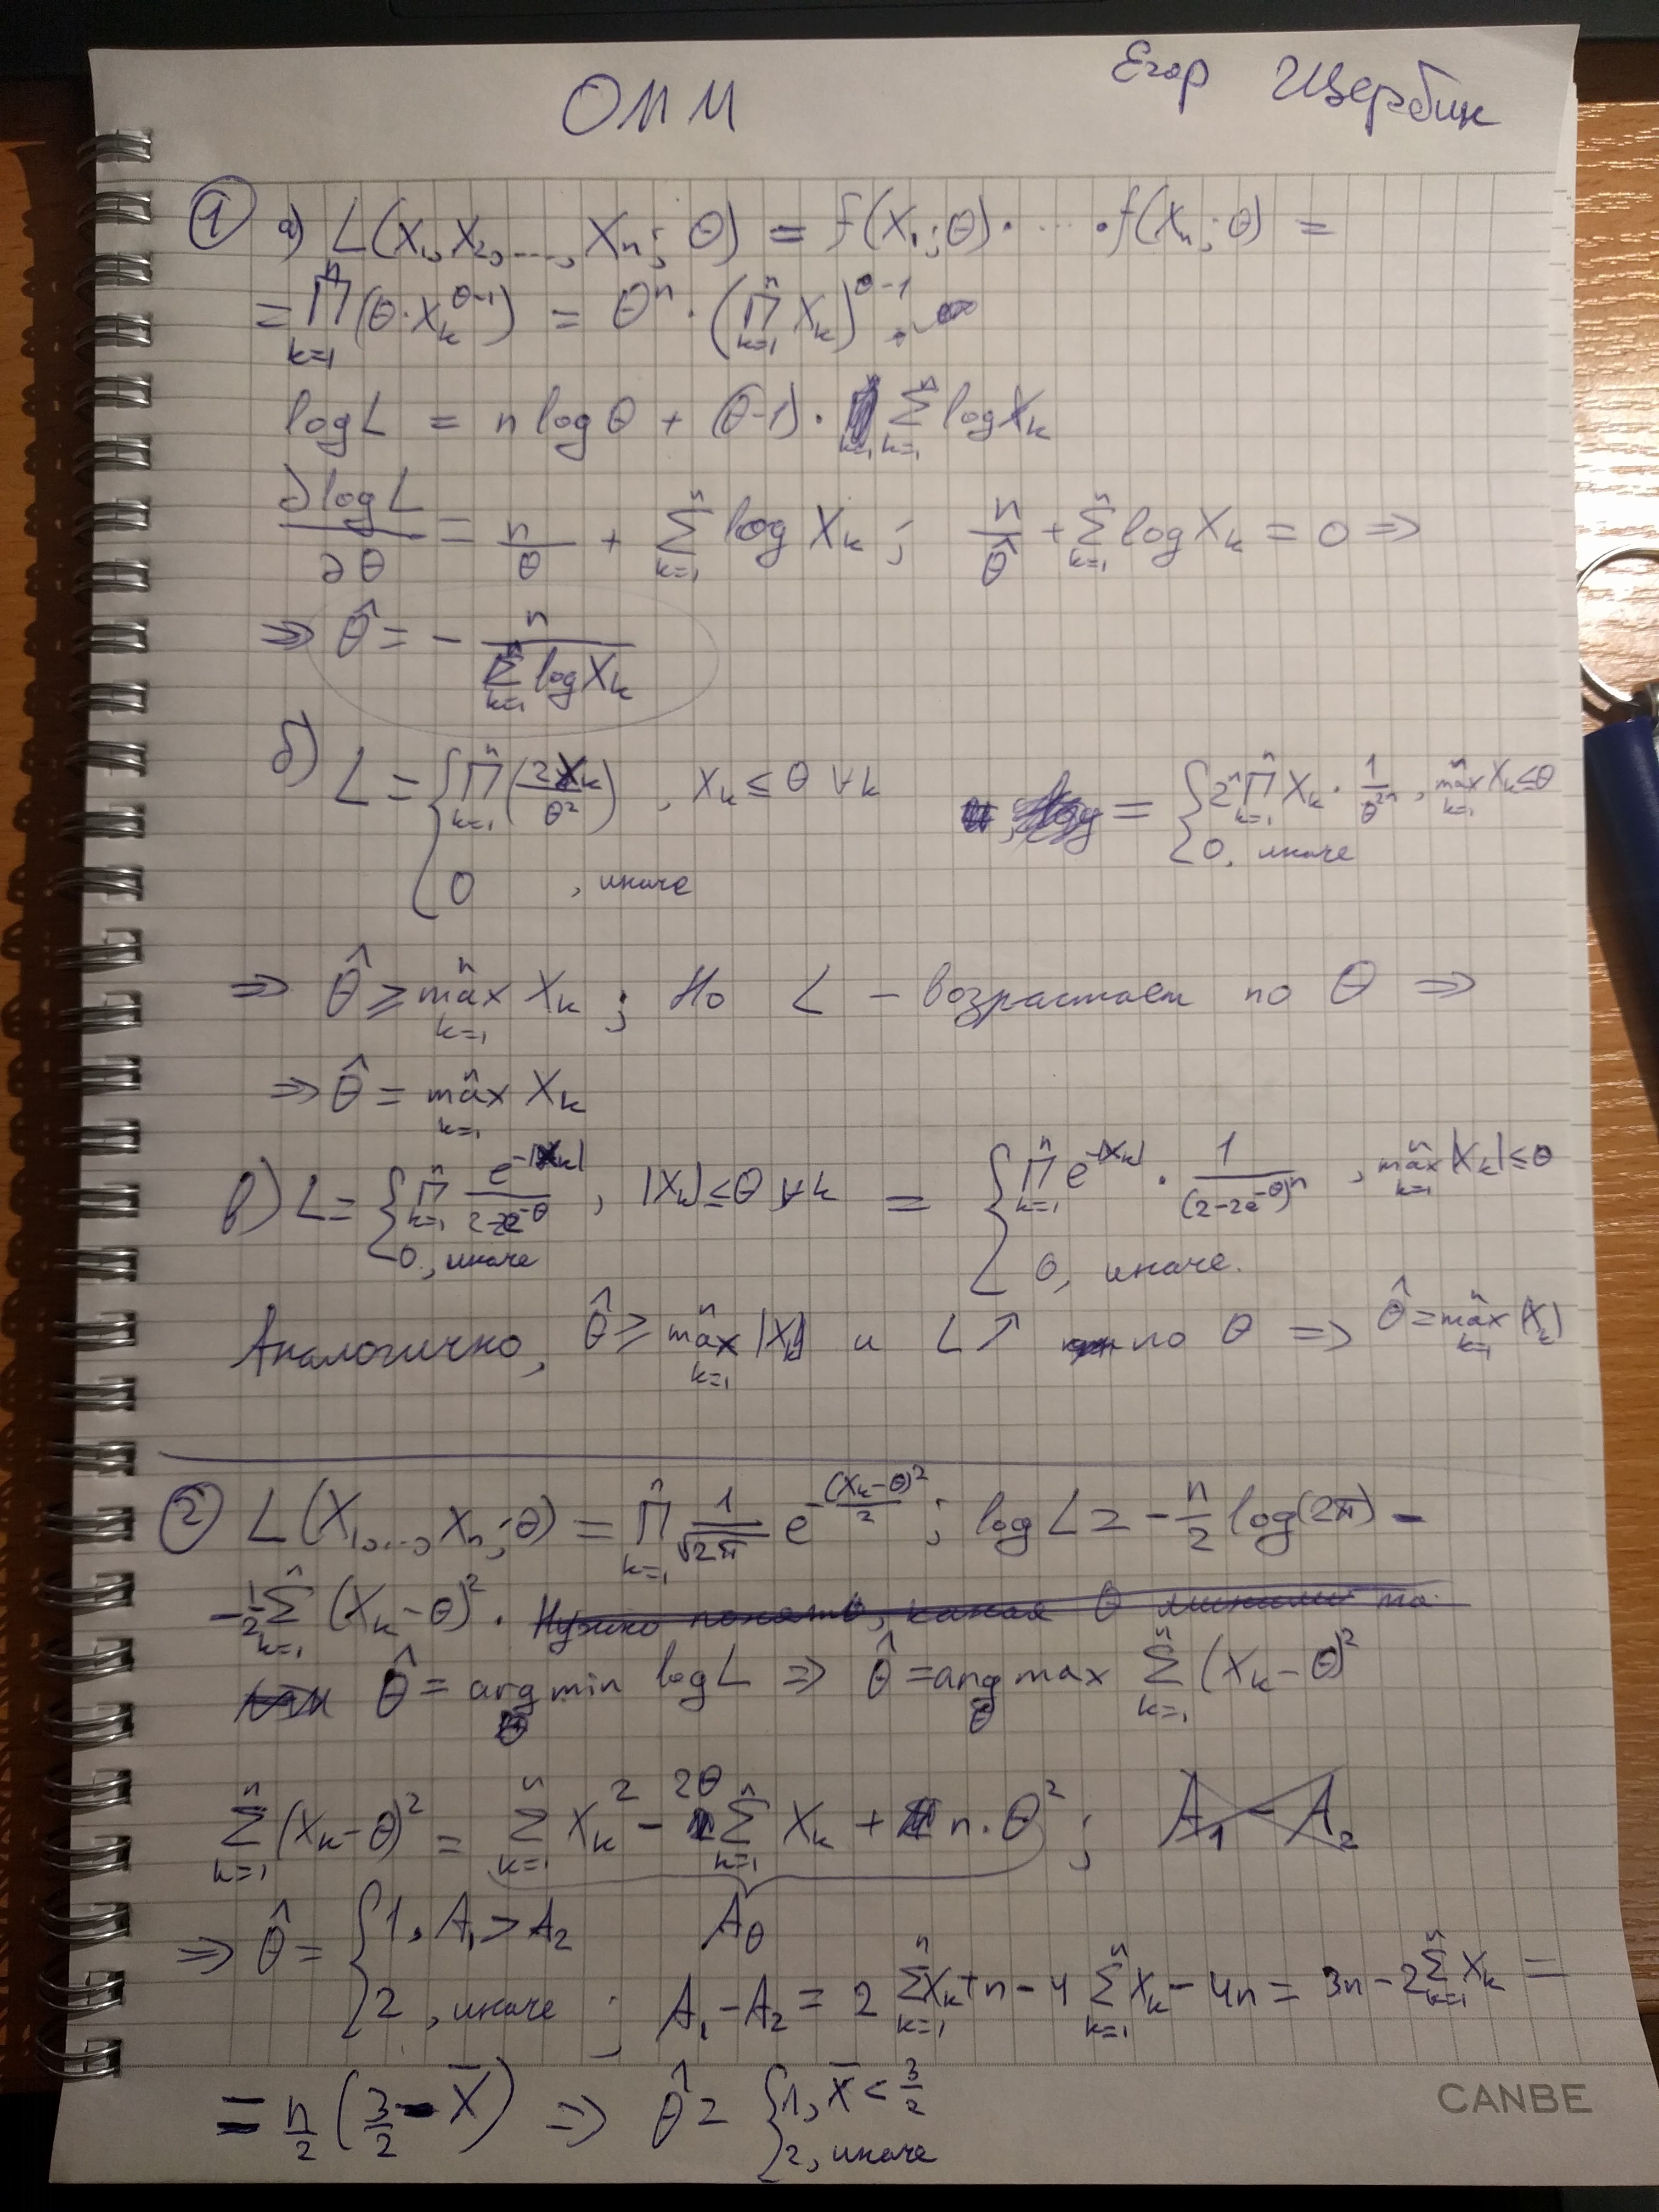 ОММ
Егор Щербин
① а) L(X₁, X₂, ..., Xₙ; θ) = f(X₁; θ) · ... · f(Xₙ; θ) =
= ∏ₖ₌₁ⁿ (θ · Xₖ^(θ-1)) = θⁿ · (∏ₖ₌₁ⁿ Xₖ)^(θ-1).
log L = n log θ + (θ-1) · ∑ₖ₌₁ⁿ log Xₖ
∂ log L / ∂θ = n/θ + ∑ₖ₌₁ⁿ log Xₖ ; n/θ̂ + ∑ₖ₌₁ⁿ log Xₖ = 0 ⇒
⇒ θ̂ = - n / ∑ₖ₌₁ⁿ log Xₖ
б) L = { ∏ₖ₌₁ⁿ (2Xₖ/θ²), Xₖ ≤ θ ∀k ; 0, иначе = { 2ⁿ ∏ₖ₌₁ⁿ Xₖ · 1/θ²ⁿ, maxₖ₌₁ⁿ Xₖ ≤ θ ; 0, иначе
⇒ θ̂ ≥ maxₖ₌₁ⁿ Xₖ ; Но L – возрастает по θ ⇒
⇒ θ̂ = maxₖ₌₁ⁿ Xₖ
в) L = { ∏ₖ₌₁ⁿ e^(-|Xₖ|) / (2-2e^(-θ)), |Xₖ| ≤ θ ∀k ; 0, иначе = { ∏ₖ₌₁ⁿ e^(-|Xₖ|) · 1/(2-2e^(-θ))ⁿ, maxₖ₌₁ⁿ |Xₖ| ≤ θ ; 0, иначе.
Аналогично, θ̂ ≥ maxₖ₌₁ⁿ |Xₖ| и L ↗ по θ ⇒ θ̂ = maxₖ₌₁ⁿ |Xₖ|
② L(X₁, ..., Xₙ; θ) = ∏ₖ₌₁ⁿ 1/√(2π) e^(-(Xₖ-θ)²/2) ; log L = - n/2 log(2π) -
- 1/2 ∑ₖ₌₁ⁿ (Xₖ - θ)².
θ̂ = arg min_θ log L ⇒ θ̂ = arg max_θ ∑ₖ₌₁ⁿ (Xₖ - θ)²
∑ₖ₌₁ⁿ (Xₖ - θ)² = ∑ₖ₌₁ⁿ Xₖ² - 2θ ∑ₖ₌₁ⁿ Xₖ + n · θ² ; A₁ - A₂
A_θ
⇒ θ̂ = { 1, A₁ > A₂ ; 2, иначе ; A₁ - A₂ = 2 ∑ₖ₌₁ⁿ Xₖ + n - 4 ∑ₖ₌₁ⁿ Xₖ - 4n = 3n - 2 ∑ₖ₌₁ⁿ Xₖ =
= n/2 (3/2 - X̄) ⇒ θ̂ = { 1, X̄ < 3/2 ; 2, иначе
CANBE